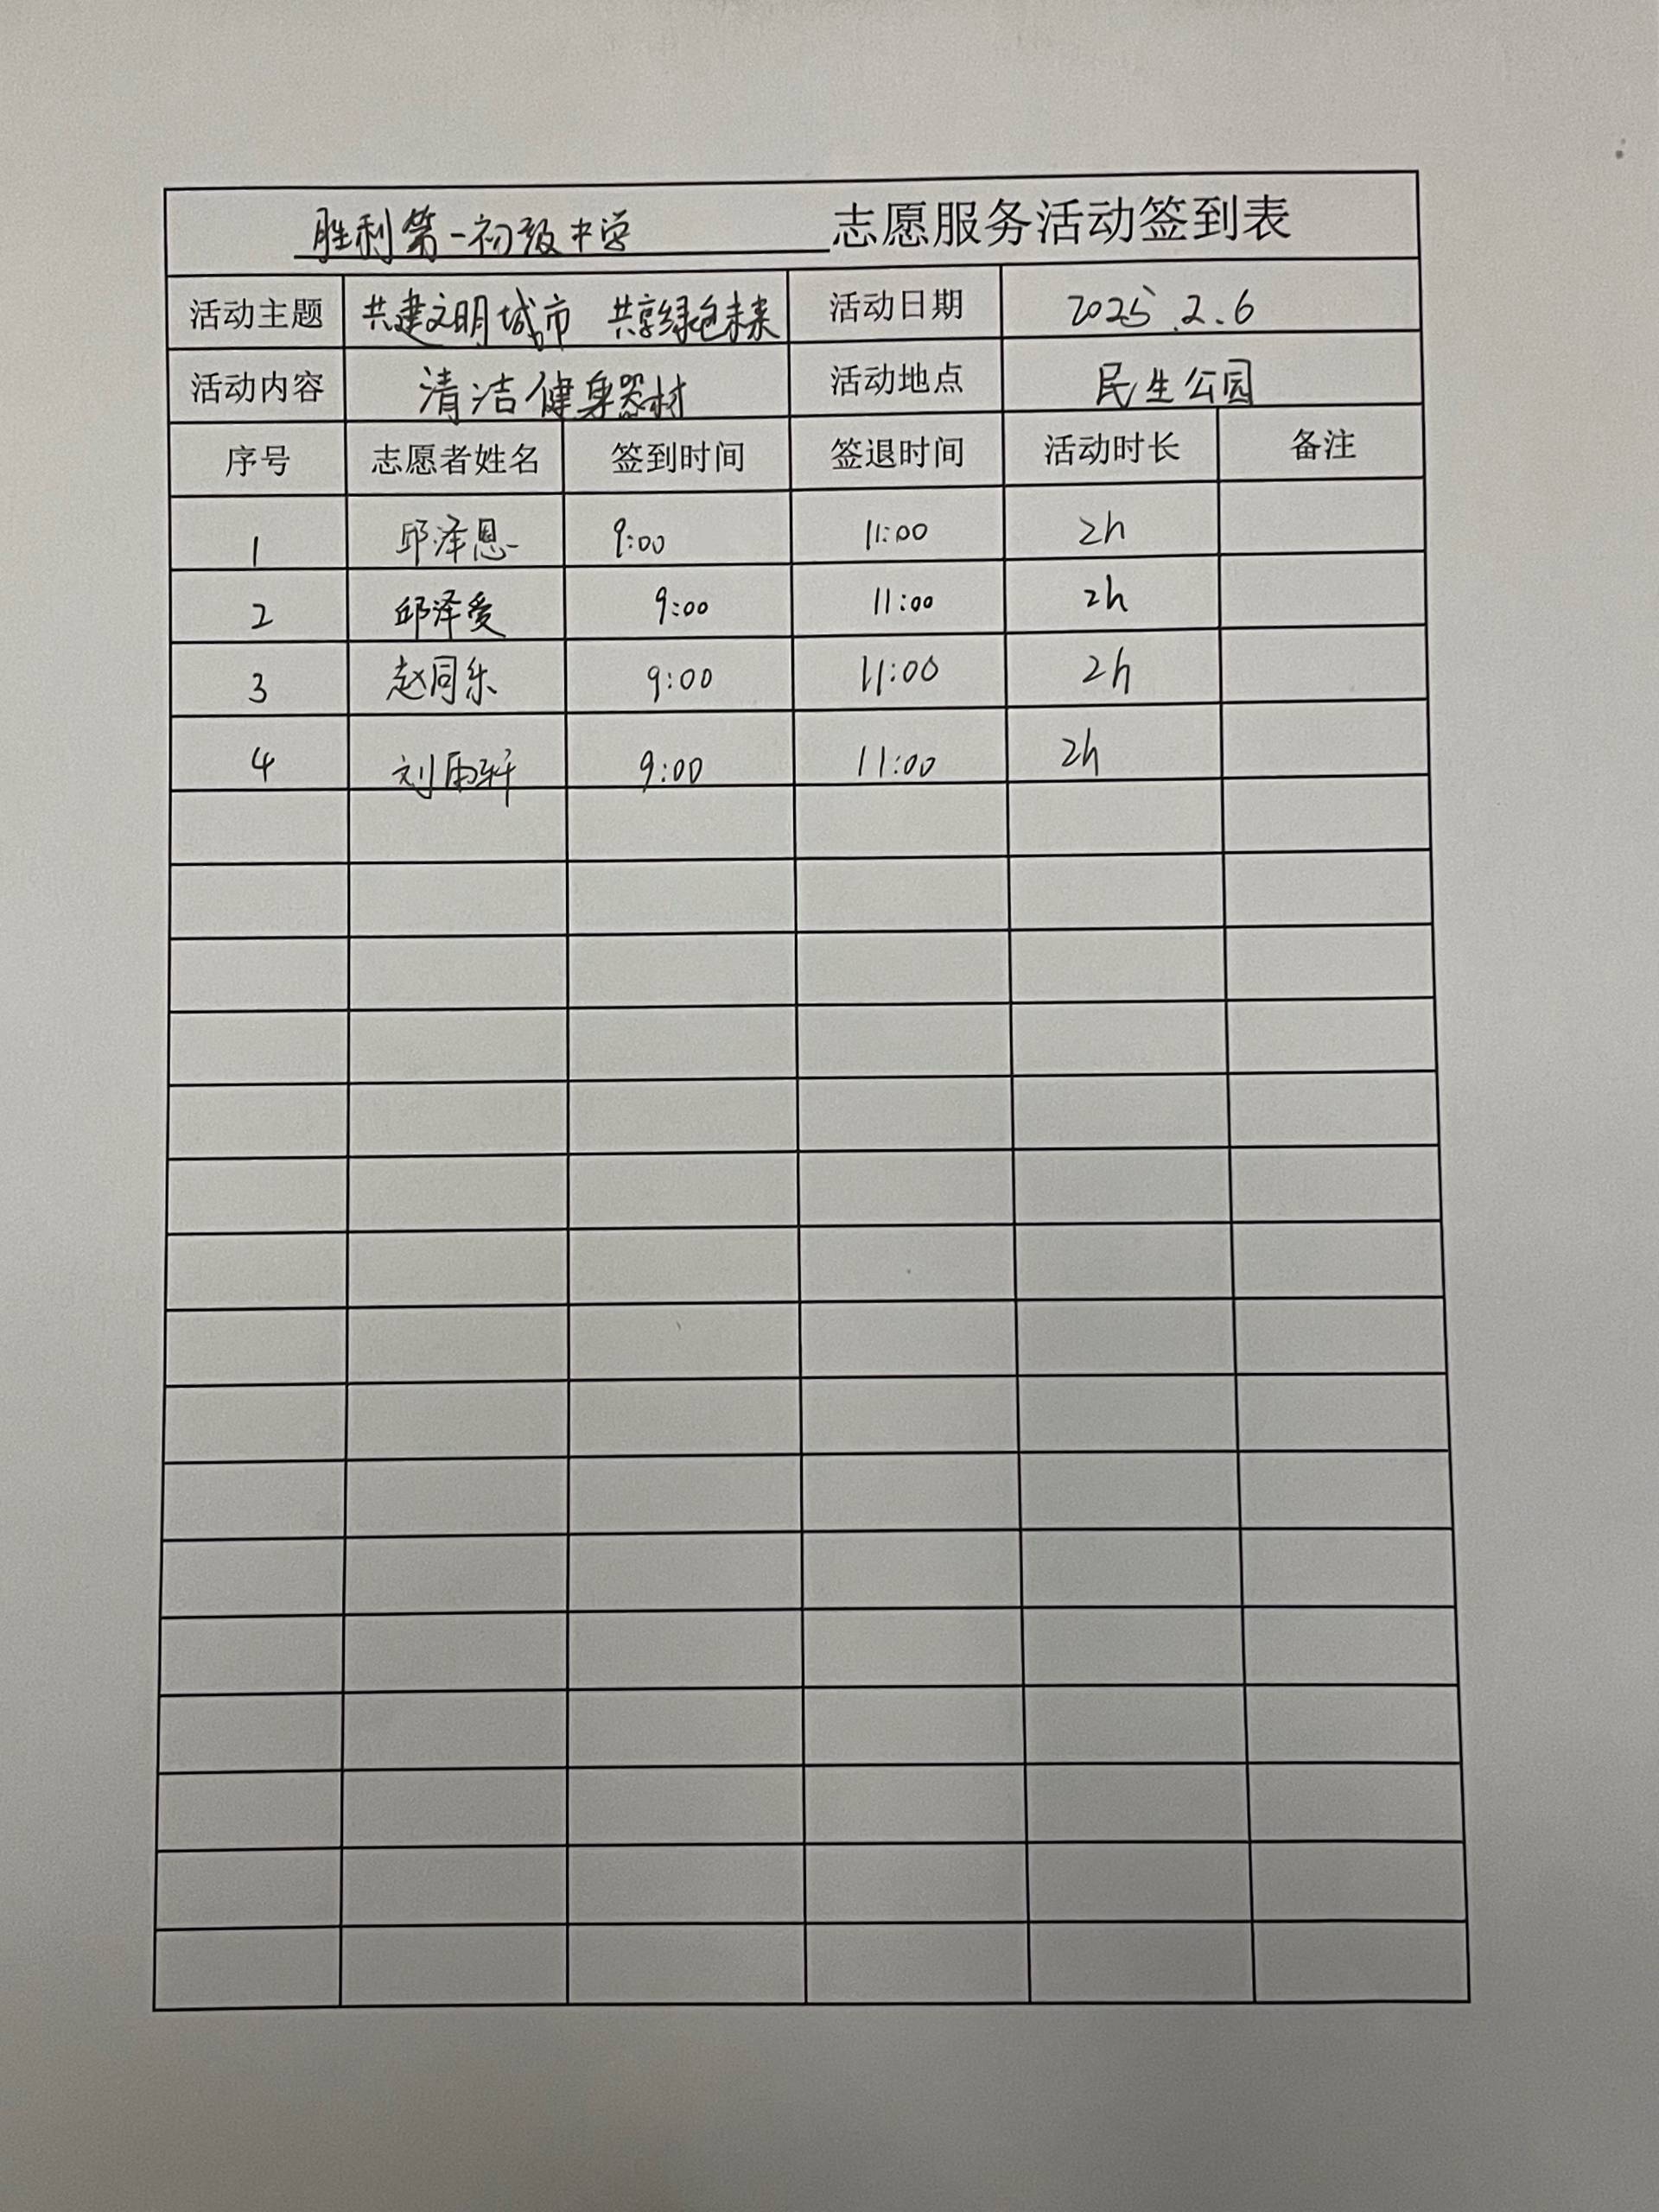 胜利第一初级中学 志愿服务活动签到表
活动主题 共建文明城市 共享绿色未来 活动日期 2025.2.6
活动内容 清洁健身器材 活动地点 民生公园
序号 志愿者姓名 签到时间 签退时间 活动时长 备注
1 邱泽恩 9:00 11:00 2h
2 邱泽爱 9:00 11:00 2h
3 赵同乐 9:00 11:00 2h
4 刘雨轩 9:00 11:00 2h